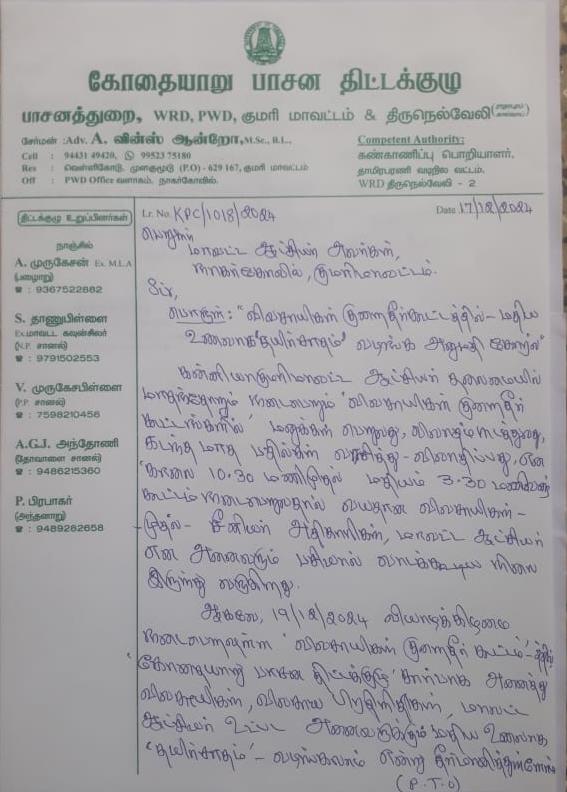 கோதையாறு பாசன திட்டக்குழு
பாசனத்துறை, WRD, PWD, குமரி மாவட்டம் & திருநெல்வேலி
சேர்மன் :Adv. A. வின்ஸ் ஆன்றோ, M.Sc., B.L.,
Cell : 94431 49420, 99523 75180
Res : வெள்ளிகோடு, முளகுமூடு (P.O) - 629 167, குமரி மாவட்டம்
Off : PWD Office வளாகம், நாகர்கோவில்.
Competent Authority:
கண்காணிப்பு பொறியாளர்,
தாமிரபரணி வடிநில வட்டம்,
WRD திருநெல்வேலி - 2
திட்டக்குழு உறுப்பினர்கள்
நாஞ்சில்
A. முருகேசன் Ex. M.L.A
(பழையாறு)
☎ : 9367522882
S. தாணுபிள்ளை
Ex.மாவட்ட கவுன்சிலர்
(N.P. சானல்)
☎ : 9791502553
V. முருகேசபிள்ளை
(P.P. சானல்)
☎ : 7598210456
A.G.J. அந்தோணி
(தோவாளை சானல்)
☎ : 9486215360
P. பிரபாகர்
(அந்தனாறு)
☎ : 9489282658
Lr. No. KPC/1018/2024 Date 17/12/2024
பெறுநர்
மாவட்ட ஆட்சியர் அவர்கள்,
நாகர்கோவில், குமரிமாவட்டம்.
Sir,
பொருள் : "விவசாயிகள் குறைதீர்கூட்டத்தில் - மதிய
உணவாக 'தயிர்சாதம்' வழங்க அனுமதி கோரல்"
கன்னியாகுமரிமாவட்ட ஆட்சியர் தலைமையில்
மாதந்தோறும் நடைபெறும் 'விவசாயிகள் குறைதீர்
கூட்டங்களில்' மனுக்கள் பெறுவது, விவாதம் நடத்துவது,
கடந்த மாத பதில்கள் வாசித்து - விவாதிப்பது, என
காலை 10.30 மணிமுதல் மதியம் 3.30 மணிவரை
கூட்டம் நடைபெறுவதால் வயதான விவசாயிகள் -
முதல் - சீனியர் அதிகாரிகள், மாவட்ட ஆட்சியர்
என அனைவரும் பசியால் வாடக்கூடிய நிலை
இருந்து வருகிறது.
ஆகவே, 19/12/2024 வியாழக்கிழமை
நடைபெறவுள்ள 'விவசாயிகள் குறைதீர் கூட்டம்' - த்தில்
'கோதையாறு பாசன திட்டக்குழு' சார்பாக அனைத்து
விவசாயிகள், விவசாய பிரதிநிதிகள், மாவட்ட
ஆட்சியர் உட்பட அனைவருக்கும் மதிய உணவாக
'தயிர்சாதம்' - வழங்கலாம் என்று தீர்மானித்துள்ளோம்
(P.T.O)